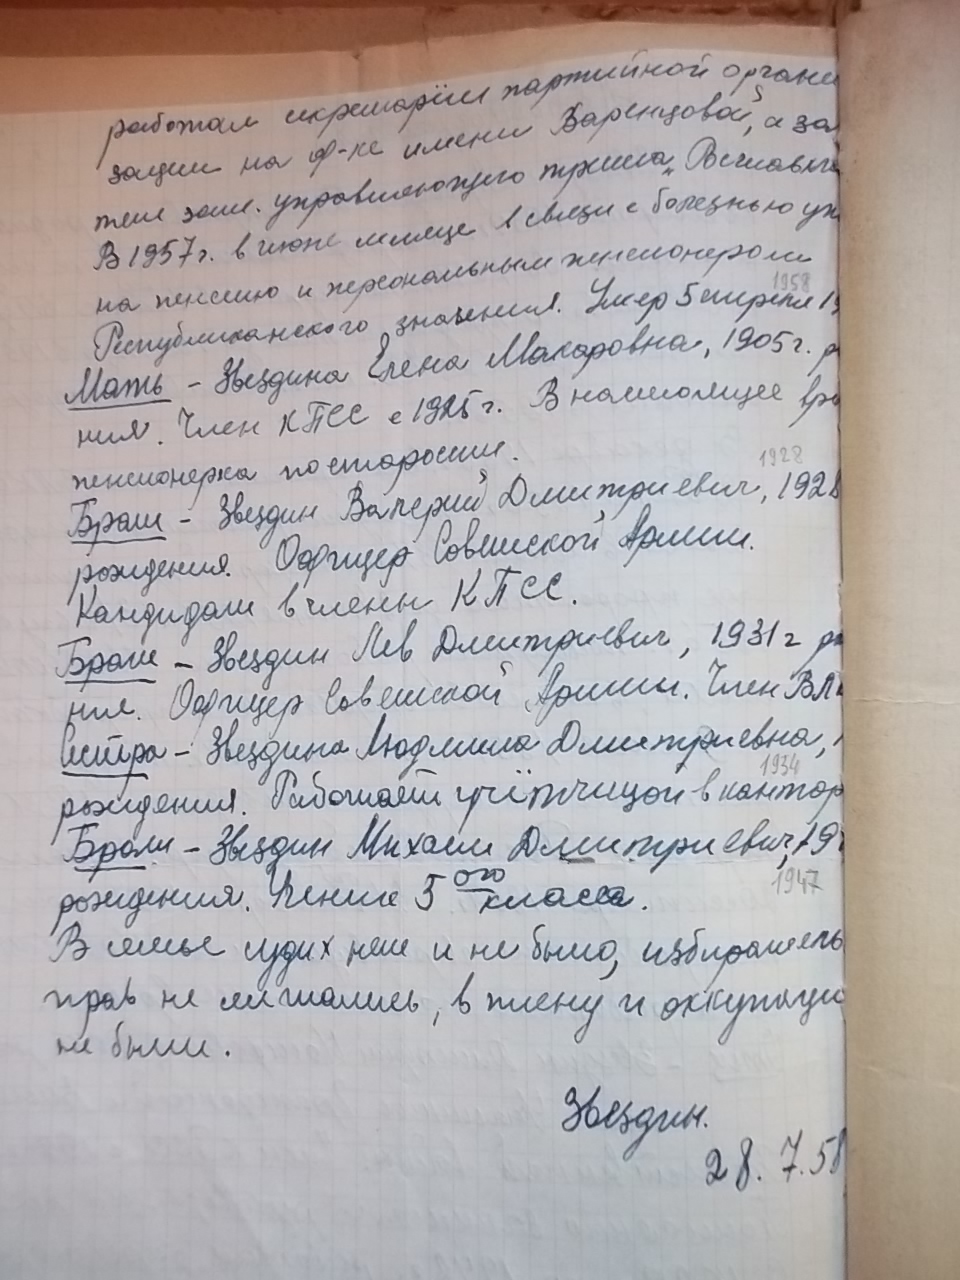 работал секретарём партийной органи
зации на ф-ке имени Варенцовой, а за
тем зам. управляющего треста „Росглавхл
В 1957 г. в июне месяце в связи с болезнью уш
на пенсию и персональным пенсионером
1958
Республиканского значения. Умер 5 апреля 19
Мать – Звездина Елена Макаровна, 1905 г. р
ния. Член КПСС с 1925 г. В настоящее вре
пенсионерка по старости.
1928
Брат – Звездин Валерий Дмитриевич, 1928
рождения. Офицер Советской Армии.
Кандидат в члены КПСС.
Брат – Звездин Лев Дмитриевич, 1931 г ро
ния. Офицер Советской Армии. Член ВЛ
Сестра – Звездина Людмила Дмитриевна, 1
1934
рождения. Работает учётчицой в контор
Брат – Звездин Михаил Дмитриевич, 19
1947
рождения. Ученик 5ого класса.
В семье судих нет и не было, избиратель
прав не лишались, в плену и оккупаци
не были.
Звездин.
28.7.58